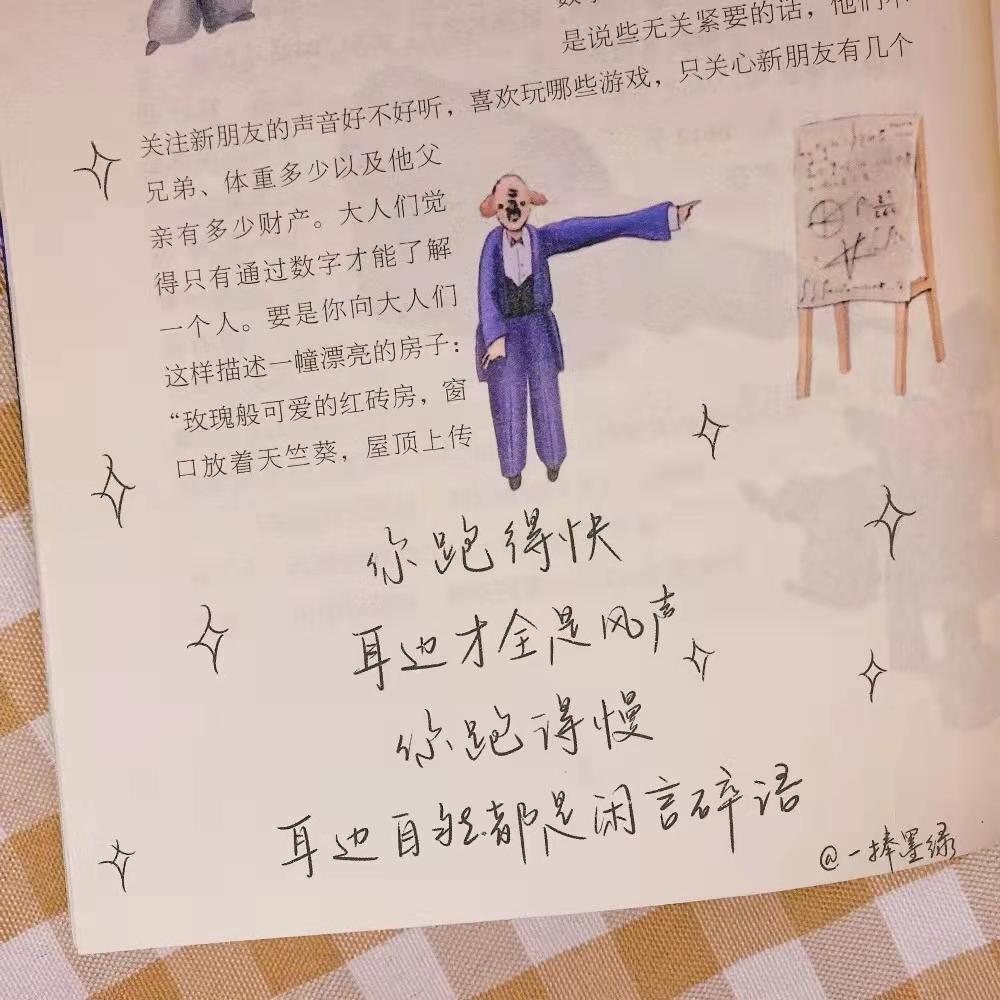 是说些无关紧要的话，他们
关注新朋友的声音好不好听，喜欢玩哪些游戏，只关心新朋友有几个
兄弟、体重多少以及他父
亲有多少财产。大人们觉
得只有通过数字才能了解
一个人。要是你向大人们
这样描述一幢漂亮的房子：
“玫瑰般可爱的红砖房，窗
口放着天竺葵，屋顶上传
你跑得快
耳边才全是风声
你跑得慢
耳边自然都是闲言碎语
@一捧墨绿